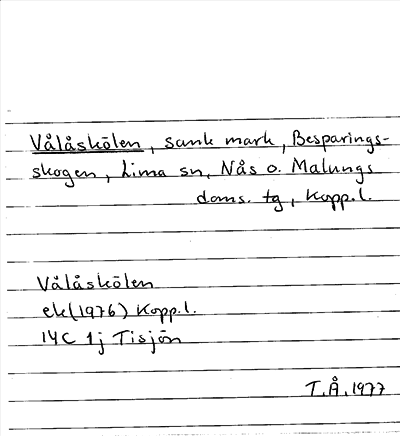 Vålåskölen, sank mark, Besparings-
skogen, Lima sn, Nås o. Malungs
doms. tg, Kopp.l.
Vålåskölen
ek(1976) Kopp.l.
14C 1j Tisjön
T.Å. 1977